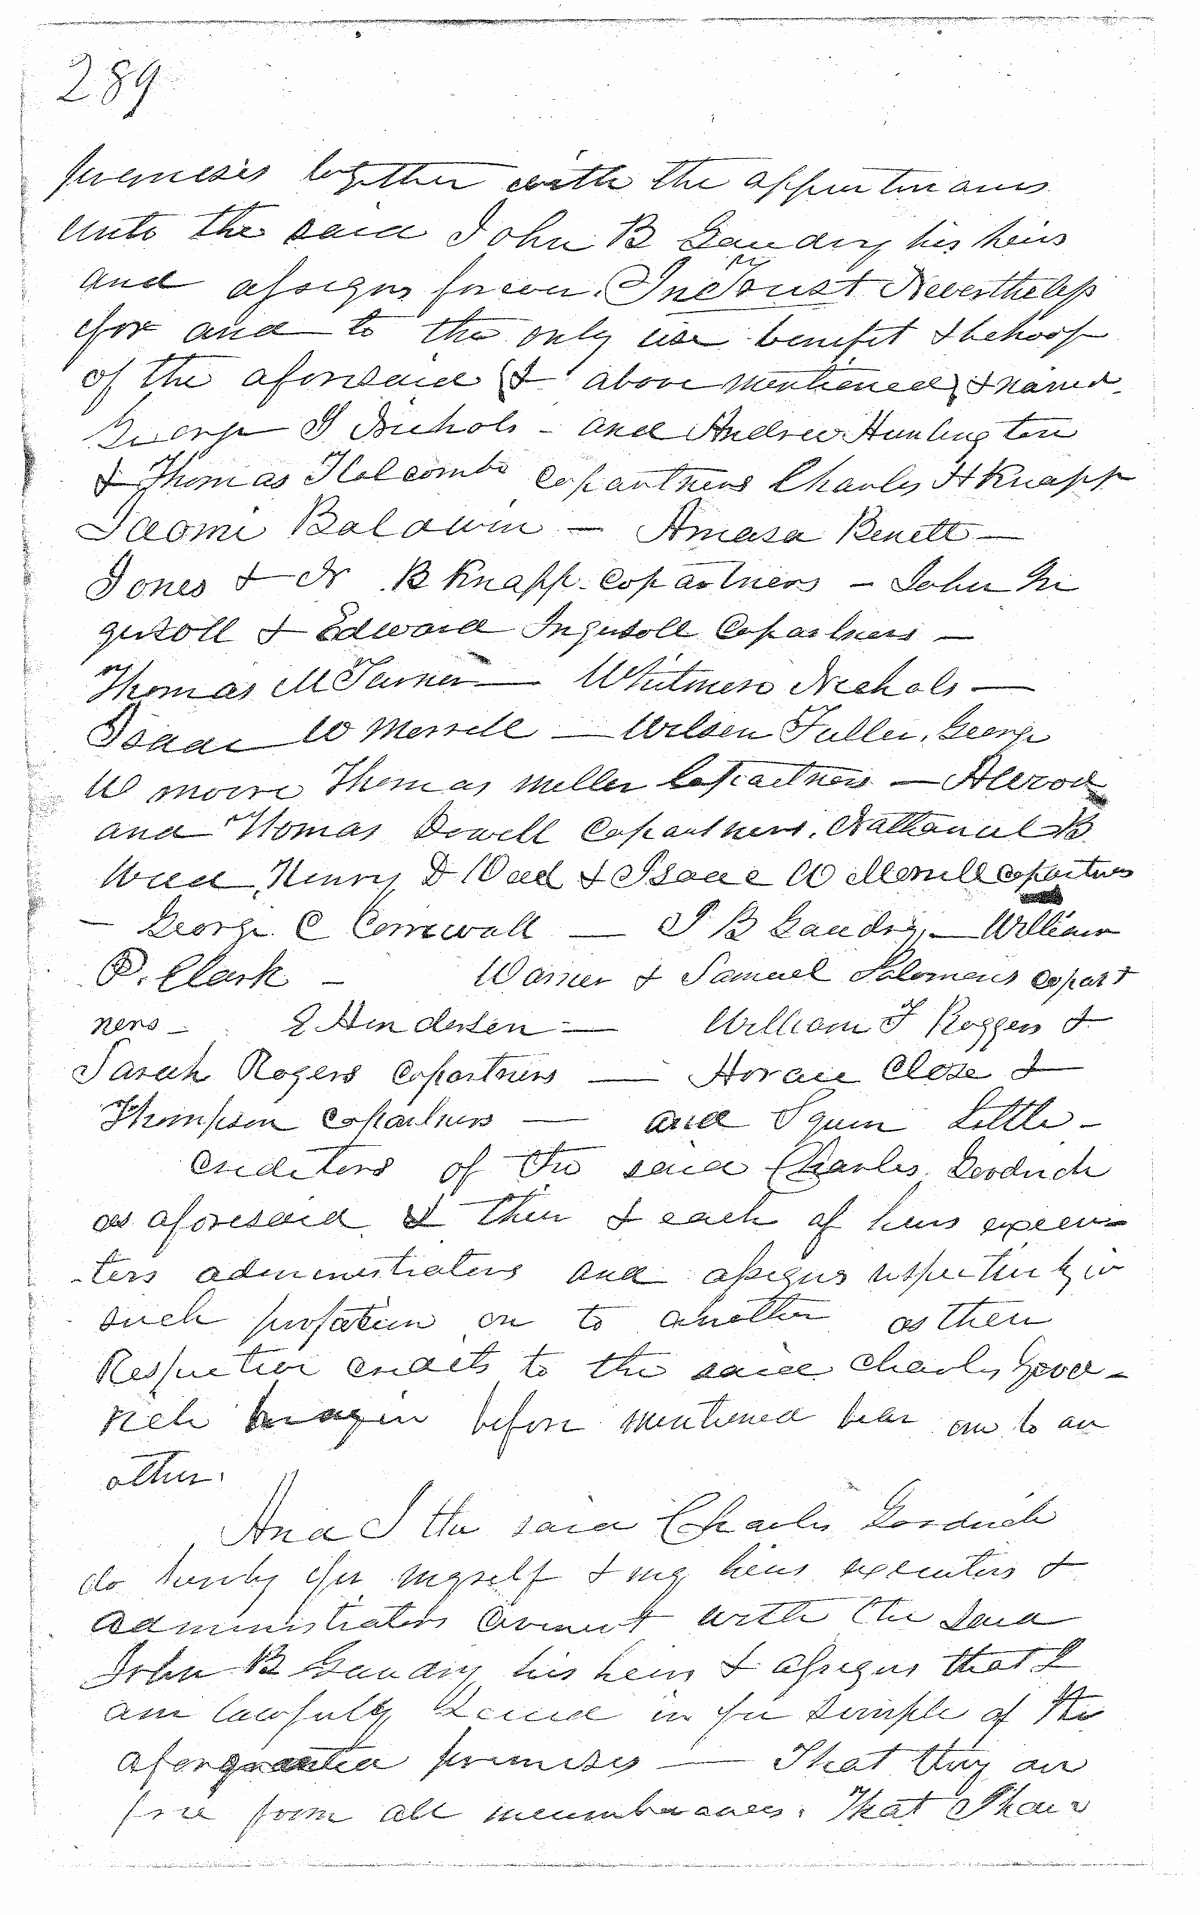 289
premesis together with the appurtenances
unto the said John B Gaudry his heirs
and assigns forever. In Trust Nevertheless
for and to the only use benefit & behoof
of the aforesaid (& above mentioned) & named
George J Nichols - and Andrew Huntington
& Thomas Holcombe Copartners Charles H Knapp
Naomi Baldwin - Amasa Benett -
Jones & N B Knapp Copartners - John In
gersoll & Edward Ingersoll Copartners -
Thomas M Turner - Whitmore Nichols -
Isaac W Merrell - Wilson Fuller, George
W moore Thomas Miller Copartners - Atwood
and Thomas Dowell Copartners. Nathaniel B
Weed Henry D Weed & Isaac W Merrell Copartners
- George C Cornwall - J B Gaudry, - William
P. Clark - Warner & Samuel Solomons Copart
ners - E Henderson - William F Roggers &
Sarah Rogers Copartners - Horace Close &
Thompson Copartners - and Squire Little -
Creditors of the said Charles Goodrich
as aforesaid & their & each of heirs execu-
-tors administrators and assigns respectively in
such proportion on to another as their
Respective credits to the said Charles Good-
rich before mentioned bear one to an
other.
And I the said Charles Goodrich
do hereby for myself & my heirs executors &
administrators Covenent with the said
John B Gaudry his heirs & assigns that I
am lawfully Seised in fee simple of the
aforgranted premises - That they are
free from all incumberances. That I have